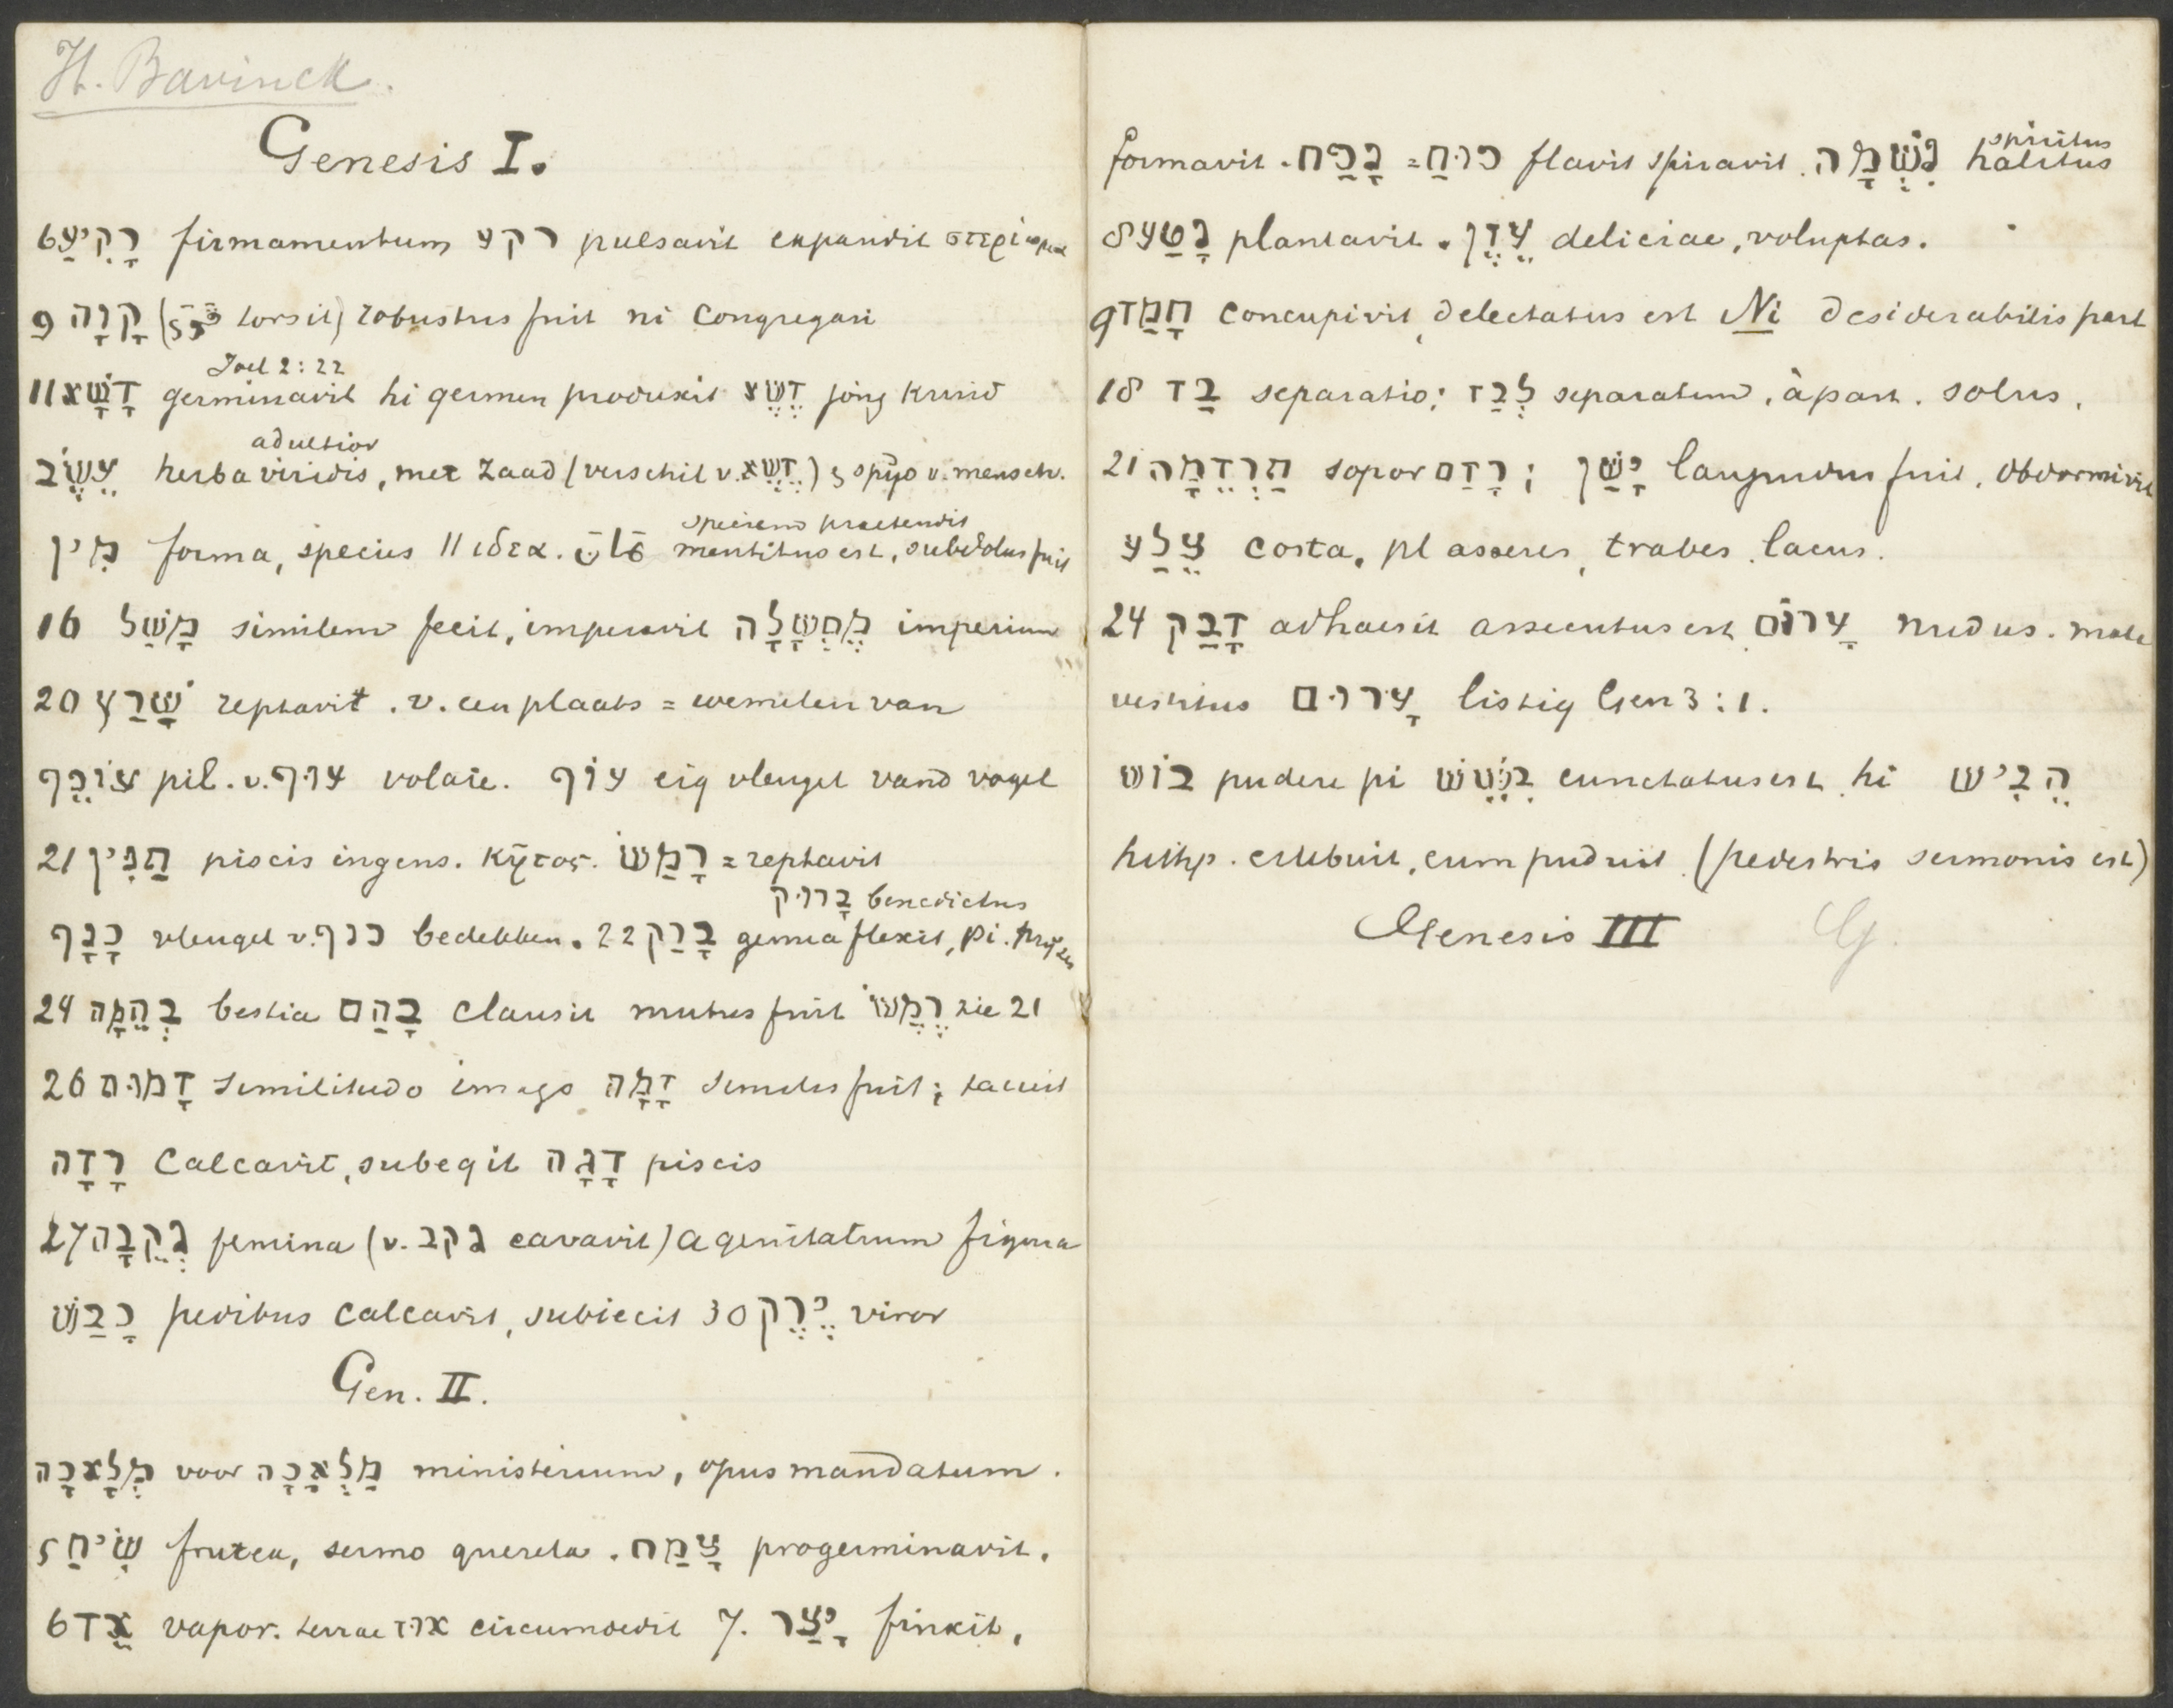 H. Bavinck.
Genesis I.
6 רָקִיעַ firmamentum רקע pulsavit expandit στερέωμα
9 קָוָה (torsit) robustus fuit ni congregari
Joel 2:22
11 דָּשָׁא germinavit hi germen produxit דֶּשֶׁא jong kruid
adultior
עֵשֶׂב herba viridis, met zaad (verschil v. דֶּשֶׁא) spijs v. mensch.
speciem praetendit
מִין forma, species || ιδεα. مَانَ mentitus est, subdolus fuit
16 מָשַׁל similem fecit, imperavit מֶמְשָׁלָה imperium
20 שָׁרַץ reptavit. v. een plaats = wemelen van
עוֹפֵף pil. v. עוּף volare. עוֹף eig vleugel vand vogel
21 תַּנִּין piscis ingens. κῆτος. רָמַשׂ = reptavit
בָּרוּךְ benedictus
כָּנָף vleugel v. כנף bedekken. 22 בָּרַךְ genua flexit, pi. prijzen
24 בְּהֵמָה bestia בָּהַם clausit mutus fuit רֶמֶשׂ zie 21
26 דְמוּת similitudo imago דָּמָה similis fuit; tacuit
רָדָה calcavit, subegit דָּגָה piscis
27 נְקֵבָה femina (v. נקב cavavit) a genitalium figura
כָּבַשׁ pedibus calcavit, subiecit 30 יֶרֶק viror
Gen. II.
מְלָאכָה voor מַלְאָכָה ministerium, opus mandatum.
5 שִׂיחַ frutex, sermo querela. צָמַח progerminavit.
6 אֵד vapor. terrae אוּד circumdedit 7. יָצַר finxit,
spiritus
formavit. נָפַח = פּוּחַ flavit spiravit. נִשְׁמָה halitus
8 נָטַע plantavit. עֵדֶן deliciae, voluptas.
9 חָמַד concupivit, delectatus est Ni desiderabilis part
18 בַּד separatio; לְבַד separatum, àpart. solus.
21 תַּרְדֵּמָה sopor רָדַם; יָשַׁן languidus fuit, obdormivit
צֵלַע costa, pl asseres, trabes. latus.
24 דָּבַק adhaesit assecutus est. עָרוֹם nudus. male
vestitus עָרוּם listig Gen 3:1.
בּוֹשׁ pudere pi בֹּשֵׁשׁ cunctatus est, hi הֵבִישׁ
hithp. erubuit, eum puduit (pedestris sermonis est)
Genesis III